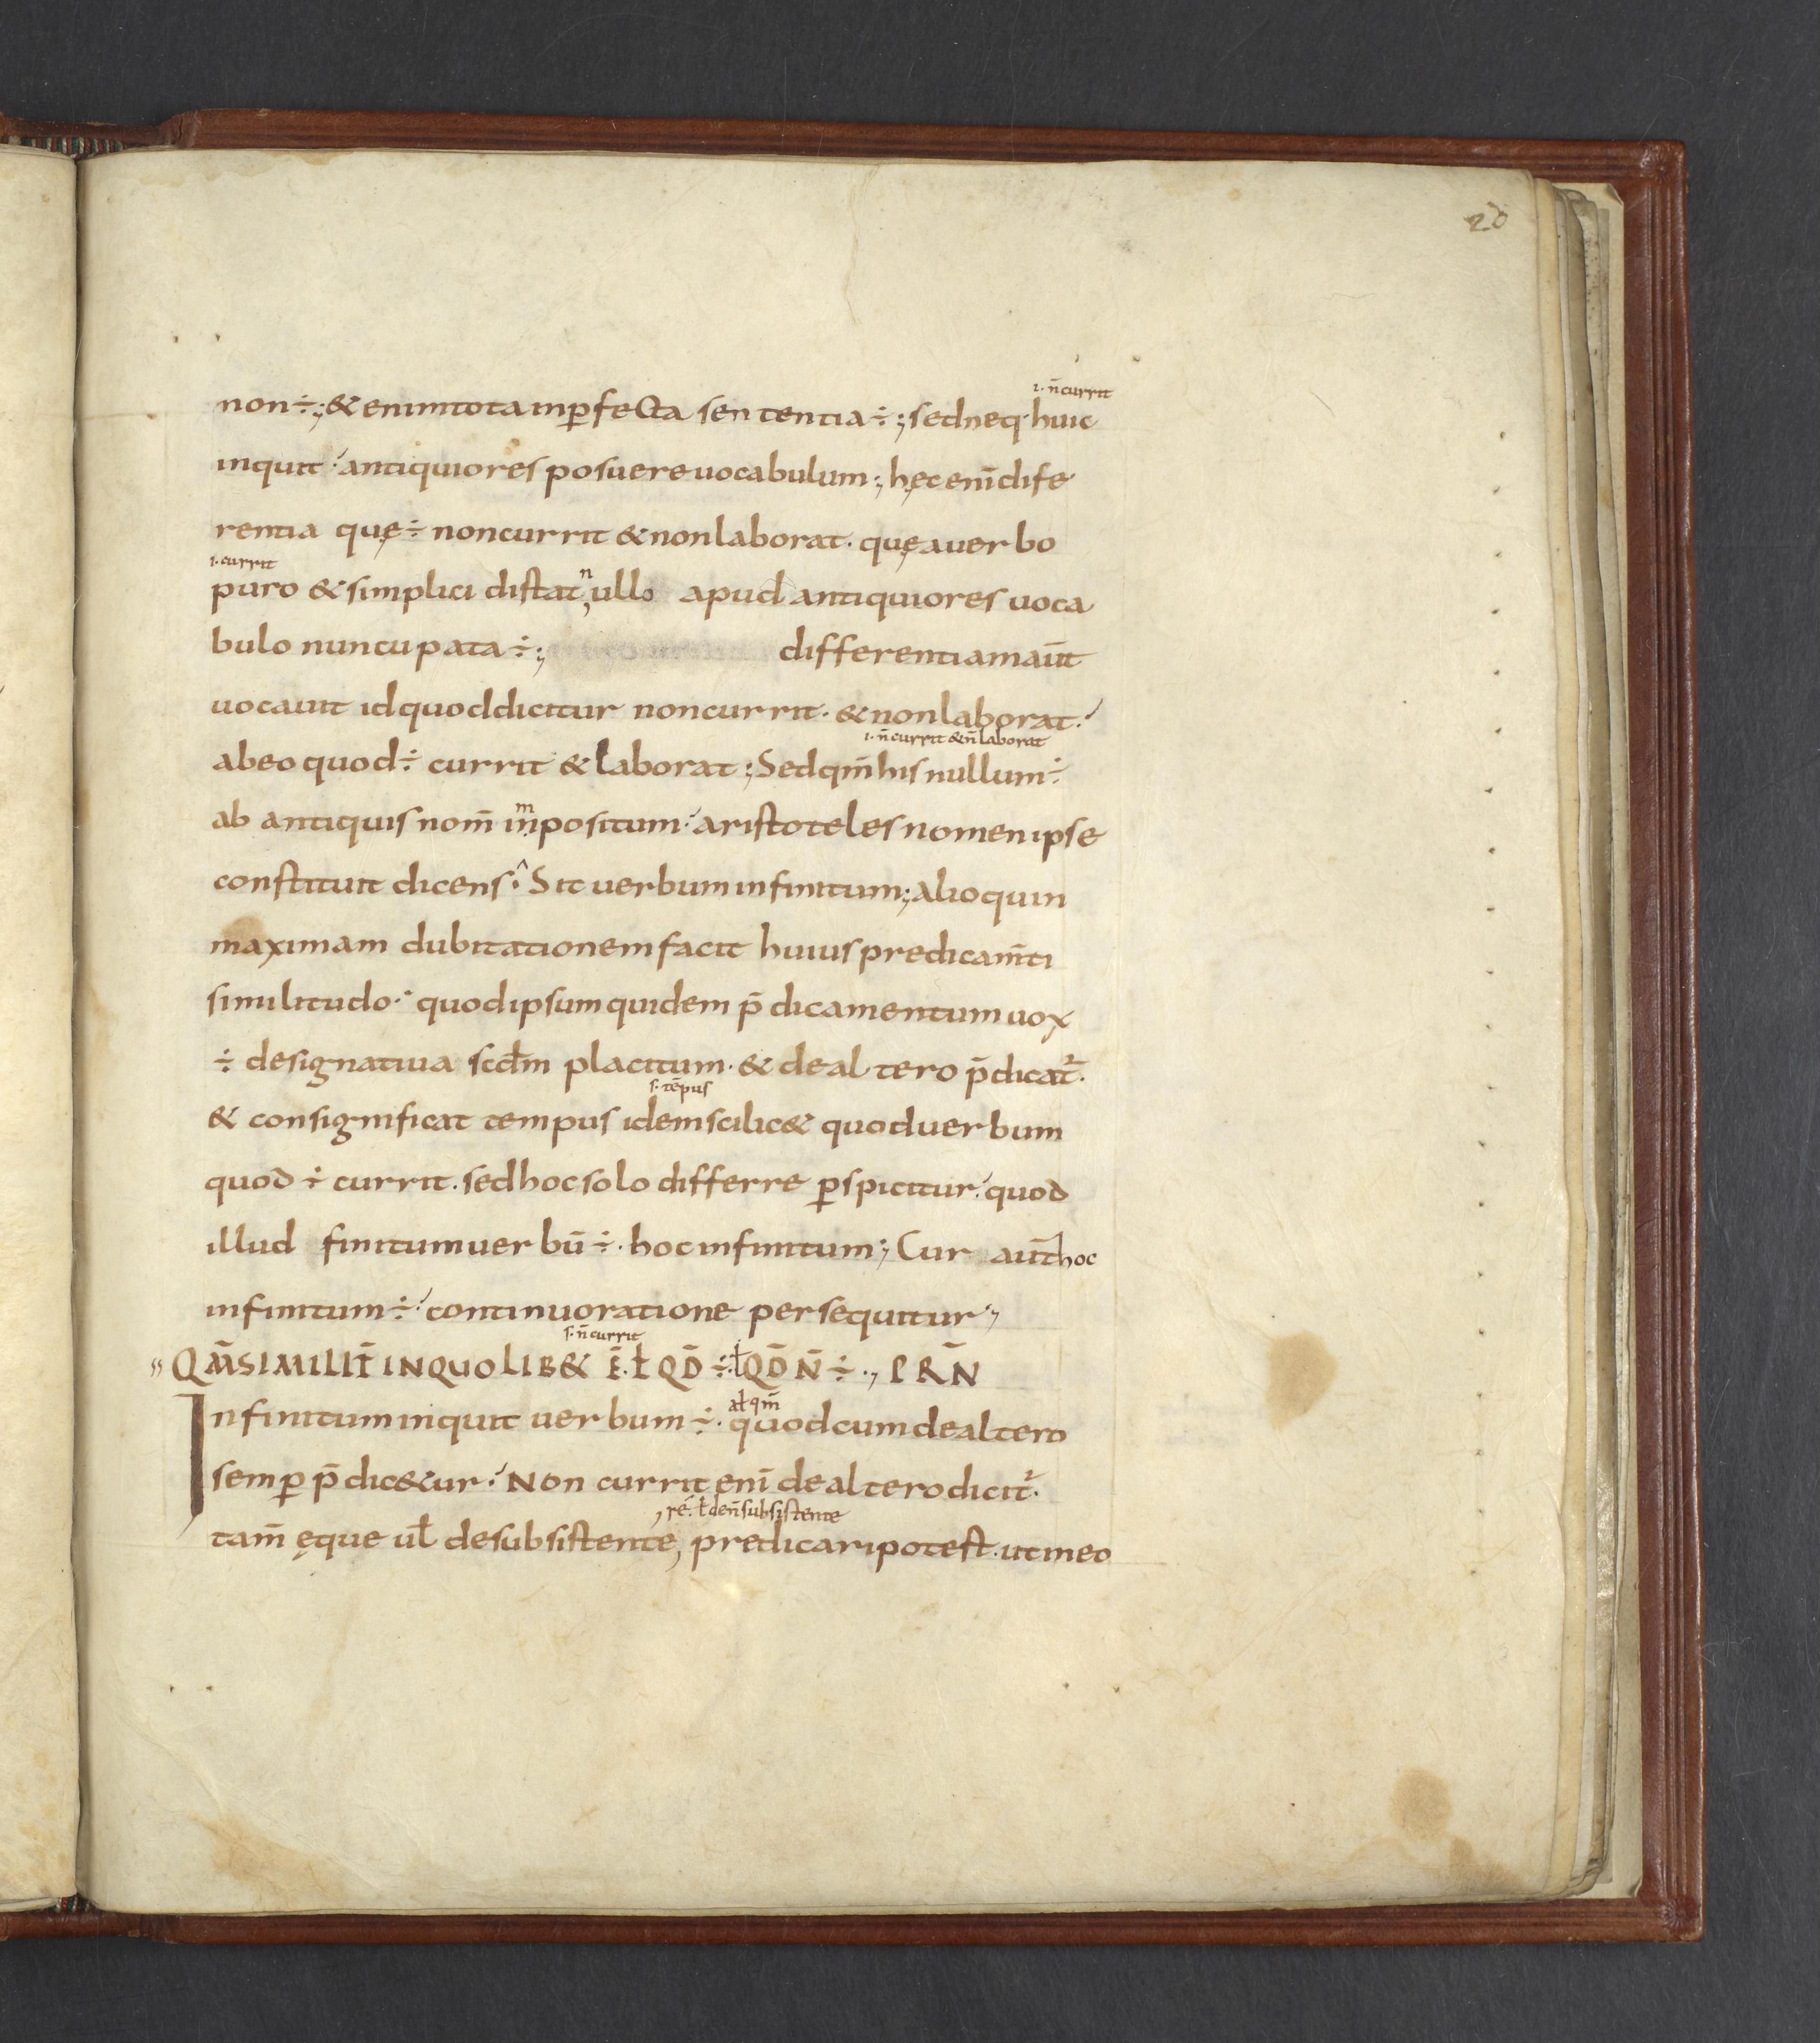 20
i. n̄ currit
non ÷; & enim tota inp̲fecta sententia ÷; sed neq· huic
inquit antiquiores posuere uocabulum; hęc enī dife
rentia quę ÷ non currit & non laborat. quę a uerbo
i. currit
puro & simplici distat, n ullo apud antiquiores uoca
bulo nuncupata ÷; differentiam aūt
uocauit id quod dicitur non currit. & non laborat.
i. n̄ currit & n̄ laborat
ab eo quod ÷ currit & laborat; Sed qm̄ his nullum ÷
m
ab antiquis nom̄ inpositum. aristoteles nomen ipse
constituit dicens. Sit uerbum infinitum; alioquin
maximam dubitationem facit huius predicam̄ti
similitudo. quod ipsum quidem p̄dicamentum uox
÷ designatiua scdm̄ placitum. & de altero p̄dicat᷑.
s. tēpus
& consignificat tempus idem scilic& quod uerbum
quod ÷ currit. sed hoc solo differre p̲spicitur. quod
illud finitum uerbū ÷. hoc infinitum; Cur aūt hoc
infinitum ÷. continuo ratione persequitur,
s. n̄ currit
QM̄ SIMILIT̄ IN QUOLIB& Ē. ł QD̄ ÷. ł QD̄ N̄ ÷., P R N̄
ał qm̄
Infinitum inquit uerbum ÷. quod cum de altero
semp̲ p̄dic&ur. Non currit enī de altero dicit᷑.
, re. ł de n̄ subsistente
tam̄ ęque ul̄ de subsistente, predicari potest. ut in eo